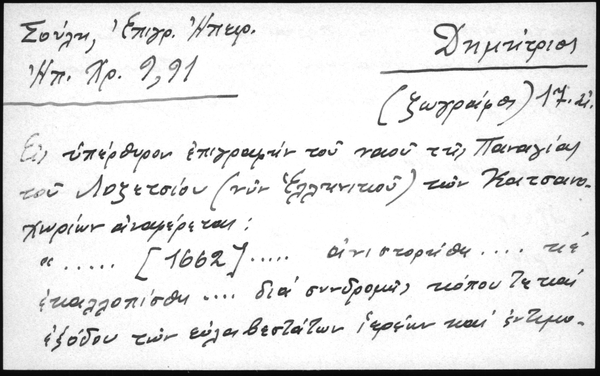 Σούλη, Ἐπιγρ. Ἠπειρ.
Ἠπ. Χρ. 9, 91
Δημήτριος
(ζωγράφος) 17. αἰ.
Εἰς ὑπέρθυρον ἐπιγραφήν τοῦ ναοῦ τῆς Παναγίας
τοῦ Λοζετσίου (νῦν Ἑλληνικοῦ) τῶν Κατσανο-
χωρίων ἀναφέρεται:
"..... [1662]..... ἀνιστορήθη .... κέ
ἐκαλλοπίσθη .... διά συνδρομῆς κόπου τε καί
ἐξόδου τῶν εὐλαβεστάτων ἱερέων καί ἐντιμο-